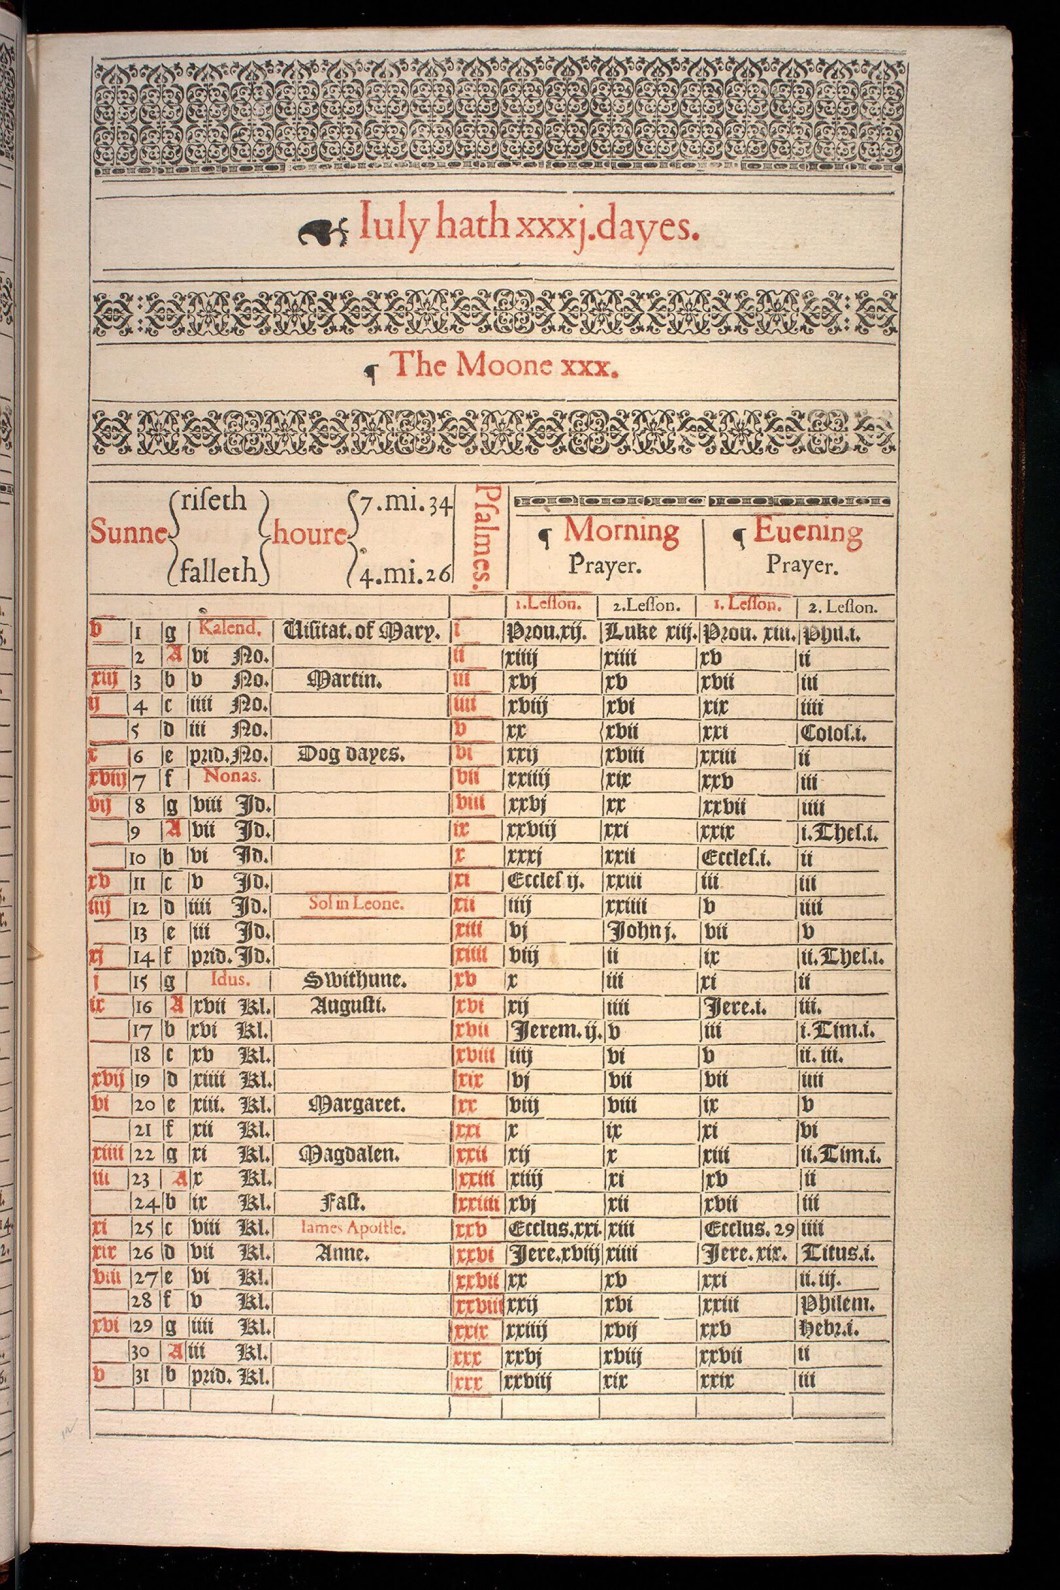 Iuly hath xxxj.dayes.
¶ The Moone xxx.
Sunne riſeth falleth houre 7.mi.34 4.mi.26
Pſalmes.
¶ Morning Prayer. ¶ Euening Prayer.
1.Leſſon. 2.Leſſon. 1. Leſſon. 2. Leſſon.
v 1 g Kalend. Viſitat. of Mary. i Prou.xij. Luke xiij. Prou. xiii. Phil.i.
2 A vi No. ii xiiij xiiii xv ii
xiij 3 b v No. Martin. iii xvj xv xvii iii
ij 4 c iiii No. iiii xviij xvi xix iiii
5 d iii No. v xx xvii xxi Coloſ.i.
x 6 e prid.No. Dog dayes. vi xxij xviii xxiii ii
xviij 7 f Nonas. vii xxiiij xix xxv iii
vij 8 g viii Id. viii xxvj xx xxvii iiii
9 A vii Id. ix xxviij xxi xxix i.Theſ.i.
10 b vi Id. x xxxj xxii Eccleſ.i. ii
xv 11 c v Id. xi Eccleſ ij. xxiii iii iii
iiij 12 d iiii Id. Sol in Leone. xii iiij xxiiii v iiii
13 e iii Id. xiii vj John j. vii v
xj 14 f prid. Id. xiiii viij ii ix ii.Theſ.i.
j 15 g Idus. Swithune. xv x iii xi ii
ix 16 A xvii Kl. Auguſti. xvi xij iiii Jere.i. iii.
17 b xvi Kl. xvii Jerem. ij. v iii i.Tim.i.
18 c xv Kl. xviii iiij vi v ii. iii.
xvij 19 d xiiii Kl. xix vj vii vii iiii
vi 20 e xiii. Kl. Margaret. xx viij viii ix v
21 f xii Kl. xxi x ix xi vi
xiiii 22 g xi Kl. Magdalen. xxii xij x xiii ii.Tim.i.
iii 23 A x Kl. xxiii xiiij xi xv ii
24 b ix Kl. Faſt. xxiiii xvj xii xvii iii
xi 25 c viii Kl. Iames Apoſtle. xxv Ecclus.xxi. xiii Ecclus. 29 iiii
xix 26 d vii Kl. Anne. xxvi Jere.xviij xiiii Jere. xix. Titus.i.
viii 27 e vi Kl. xxvii xx xv xxi ii. iij.
28 f v Kl. xxviii xxij xvi xxiii Philem.
xvi 29 g iiii Kl. xxix xxiiij xvij xxv Hebr.i.
30 A iii Kl. xxx xxvj xviij xxvii ii
v 31 b prid. Kl. xxx xxviij xix xxix iii